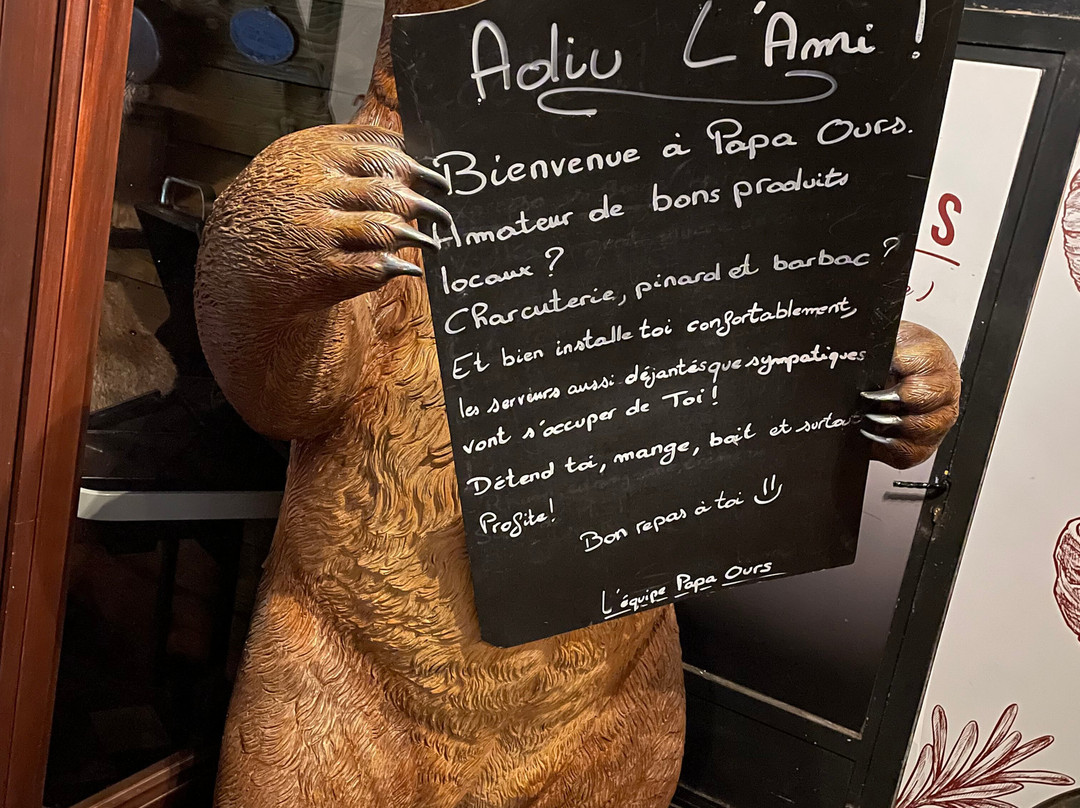 Adiu L'Ami !
Bienvenue à Papa Ours.
Amateur de bons produits
locaux ?
Charcuterie, pinard et barbac ?
Et bien installe toi confortablement,
les serveurs aussi déjantés que sympatiques
vont s'occuper de Toi !
Détend toi, mange, boit et surtout
Profite!
Bon repas à toi
L'équipe Papa Ours
S